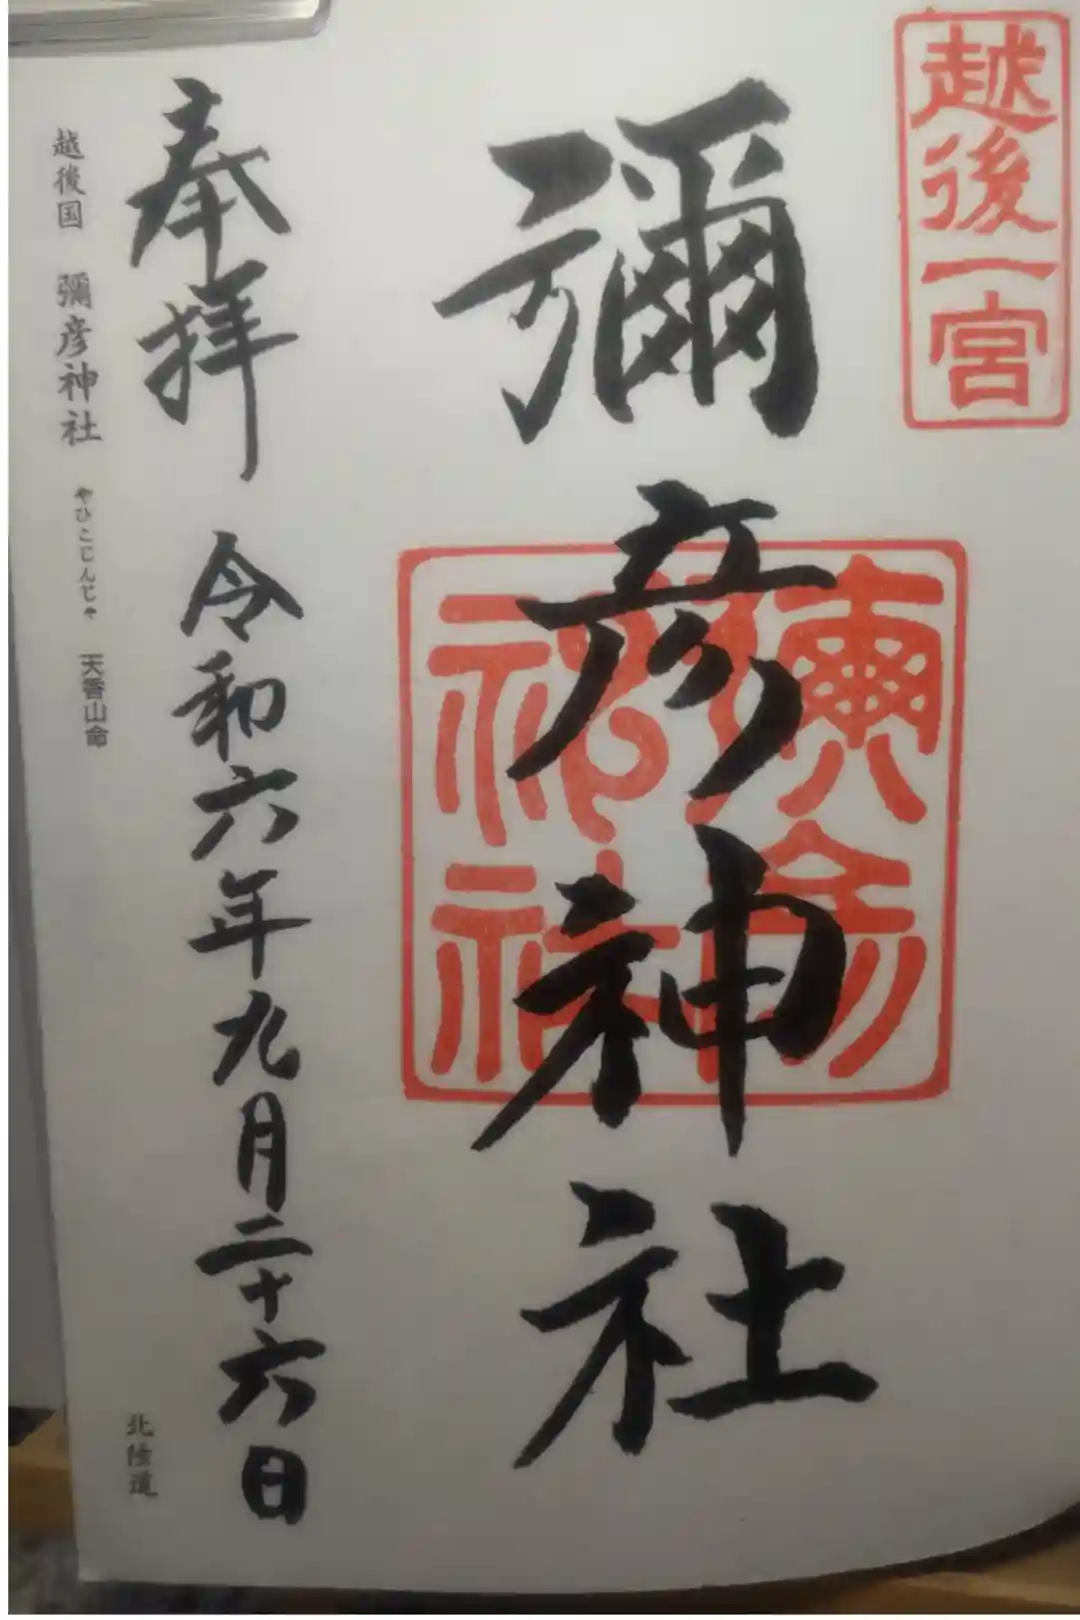 越後一宮
彌彦神社
奉拝 令和六年九月二十六日
越後国 彌彦神社 やひこじんじゃ 天香山命
北陸道